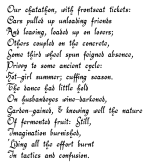 Our chatathon, with frontseat tickets:
Cars pulled up unloading friends
And leaving, loaded up on lovers;
Others coupled on the concrete,
Some third wheel spun feigned absence,
Privy to some ancient cycle:
Hot-girl summer; cuffing season.
The dance had little hold
On husbandboys wine-darkened,
Carbon-gained, & knowing well the nature
Of fermented fruit: Still,
Imagination burnished,
'Liding all the effort burnt
In tactics and confusion.